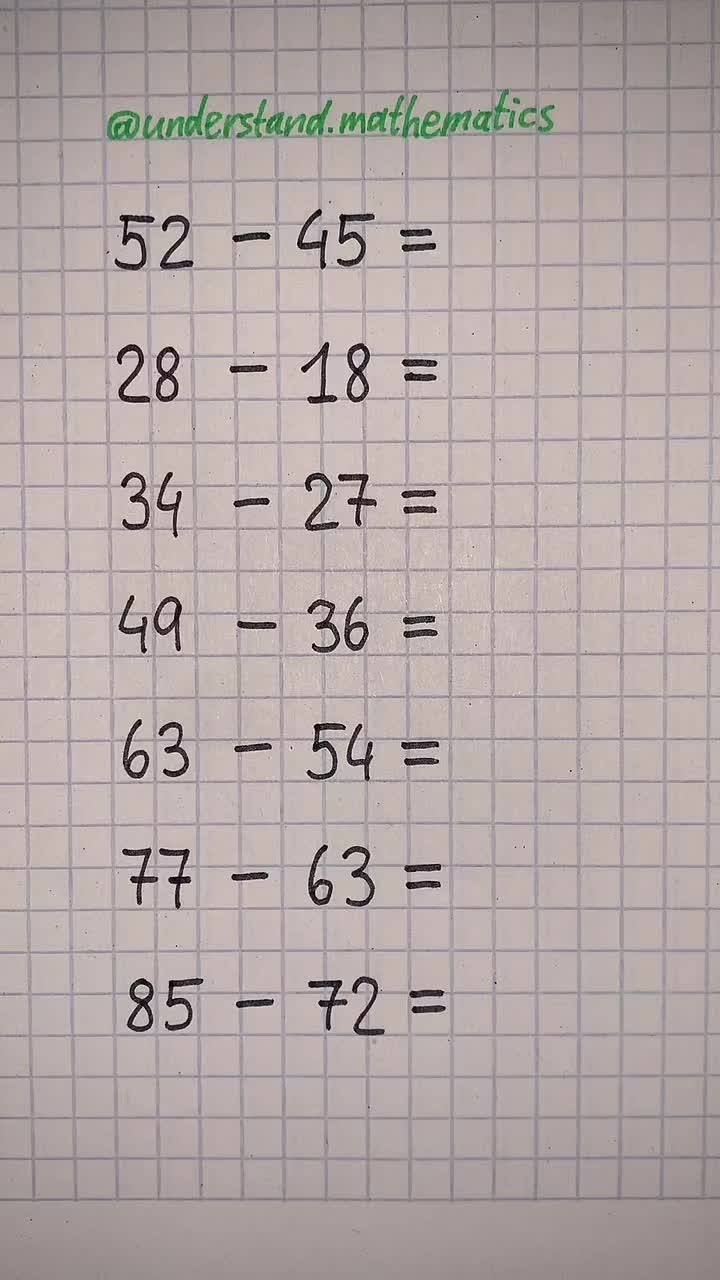 @understand.mathematics
52 - 45 =
28 - 18 =
34 - 27 =
49 - 36 =
63 - 54 =
77 - 63 =
85 - 72 =